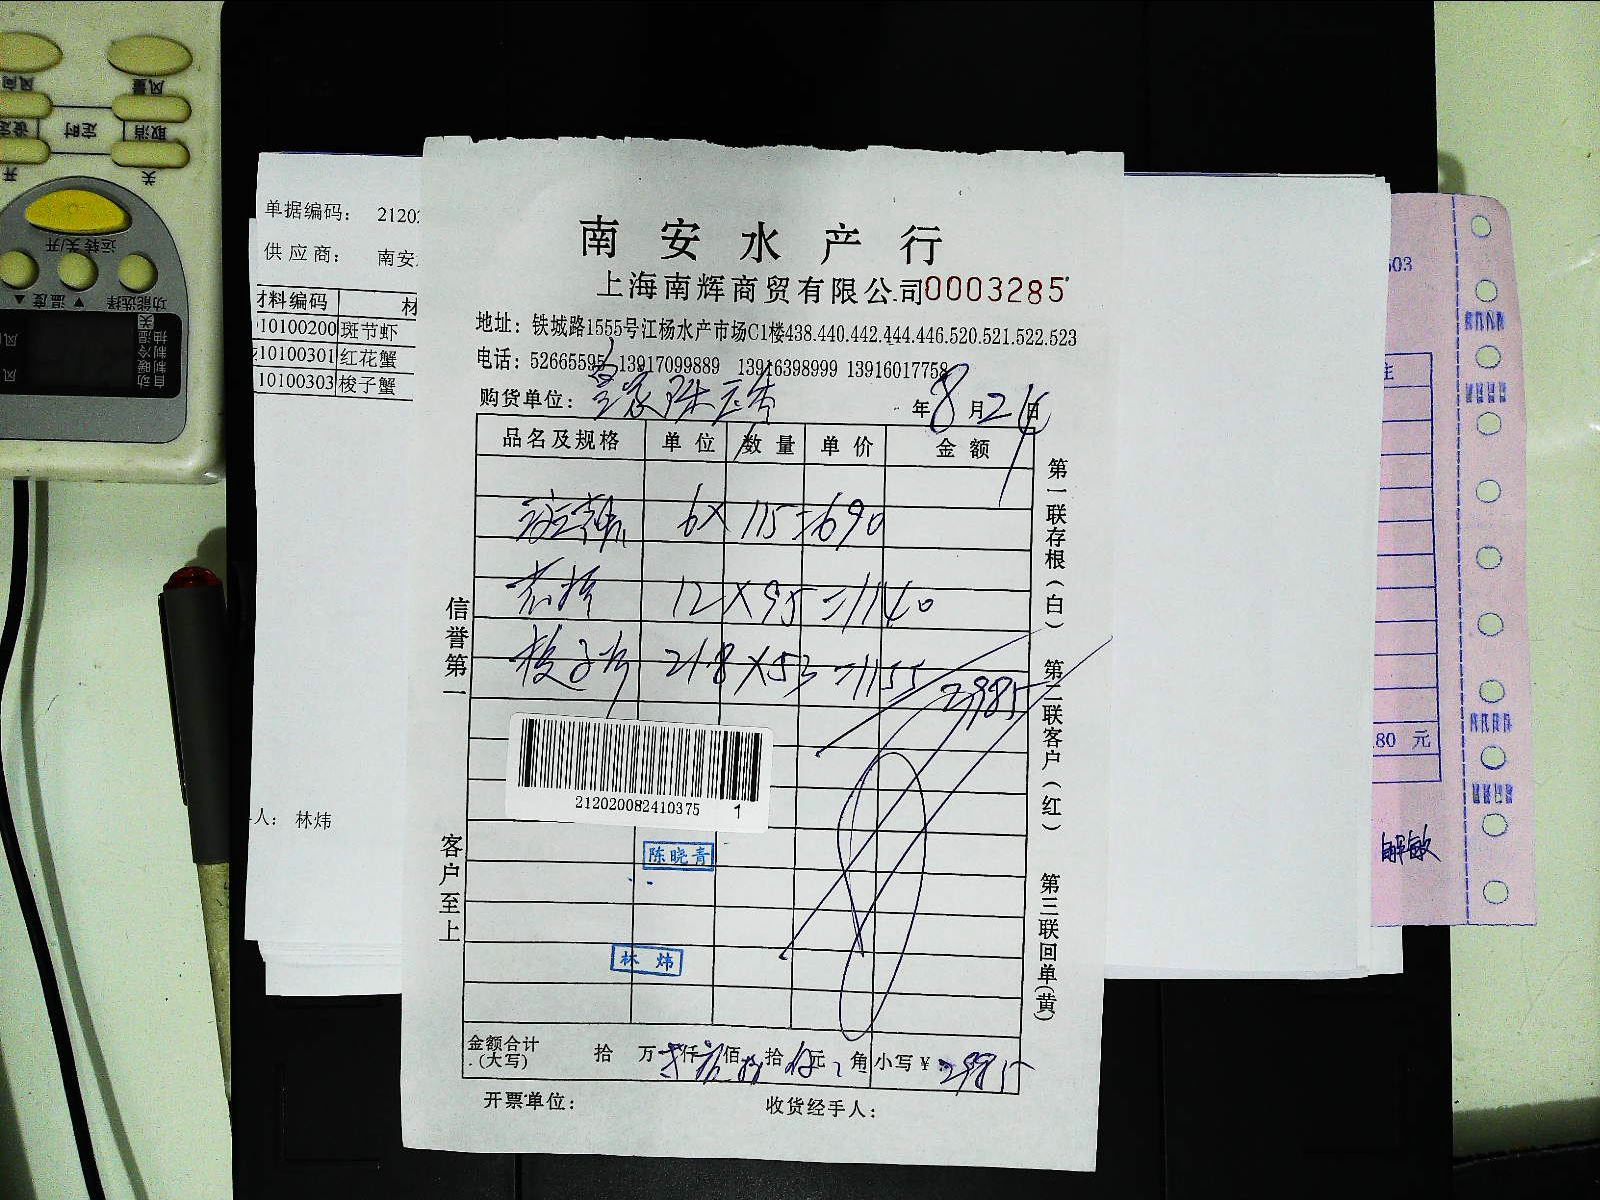 单据编码： 2120
供应商： 南安
材料编码 材
10100200 斑节虾
10100301 红花蟹
10100303 梭子蟹
人： 林炜
南安水产行
上海南辉商贸有限公司 0003285
地址：铁城路1555号江杨水产市场C1楼438.440.442.444.446.520.521.522.523
电话：52665595 13917099889 13916398999 13916017758
购货单位：
年8月24日
品名及规格 单位 数量 单价 金额
6×115=690
12×95=1140
梭子蟹 21.8×53=1155
2985
212020082410375 1
陈晓青
林炜
金额合计(大写) 拾 万 仟 佰 拾 元 角 小写￥2985
开票单位： 收货经手人：
信誉第一
客户至上
第一联存根（白）
第二联客户（红）
第三联回单(黄)
503
注
.80 元
解敏
风向 风量
设定 定时 取消
开 关
运转关/开
▲温度▼ 功能选择
关
抽湿
制冷
制暖
自动
风
风